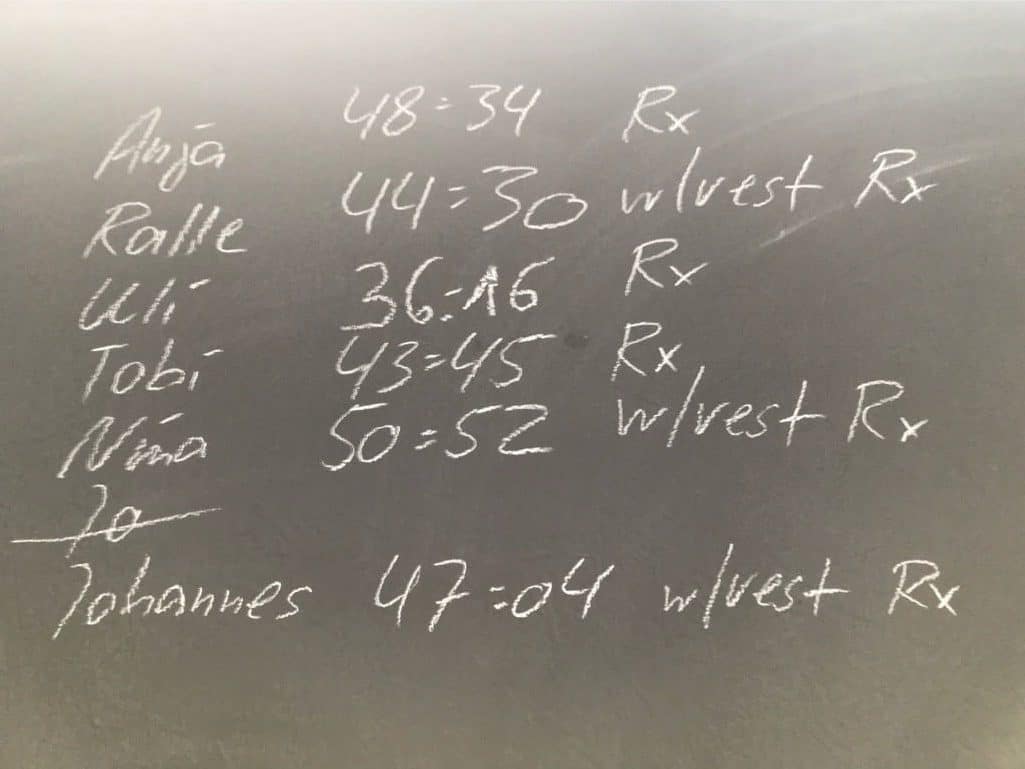 Anja 48:34 Rx
Ralle 44:30 w/vest Rx
Uli 36:16 Rx
Tobi 43:45 Rx
Nina 50:52 w/vest Rx
Jo
Johannes 47:04 w/vest Rx